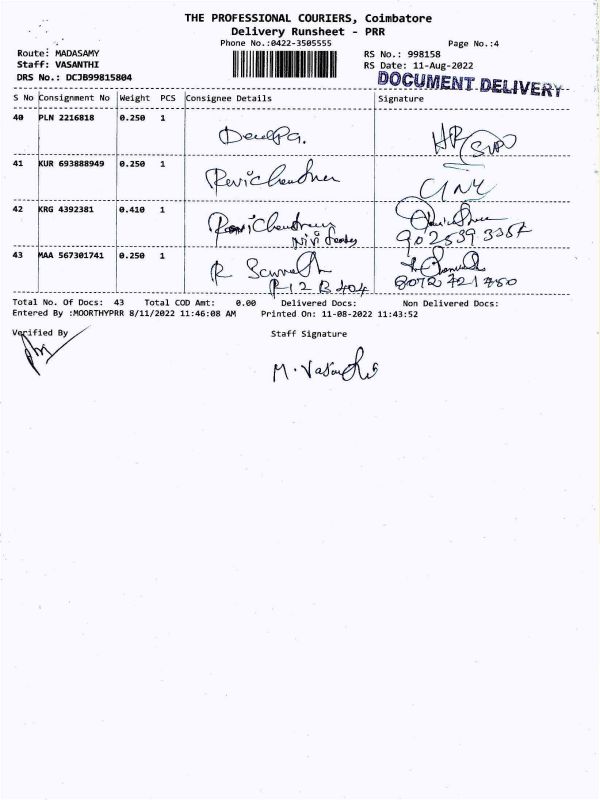 THE PROFESSIONAL COURIERS, Coimbatore
Delivery Runsheet - PRR
Phone No.:0422-3505555 Page No.:4
Route: MADASAMY RS No.: 998158
Staff: VASANTHI RS Date: 11-Aug-2022
DRS No.: DCJB99815804 DOCUMENT DELIVERY
S No Consignment No Weight PCS Consignee Details Signature
40 PLN 2216818 0.250 1
41 KUR 693888949 0.250 1 Ravichandran
42 KRG 4392381 0.410 1 Ravichandran
43 MAA 567301741 0.250 1
R12 B 404 8072 421 750
Total No. Of Docs: 43 Total COD Amt: 0.00 Delivered Docs: Non Delivered Docs:
Entered By :MOORTHYPRR 8/11/2022 11:46:08 AM Printed On: 11-08-2022 11:43:52
Verified By Staff Signature
M. Vasanthi